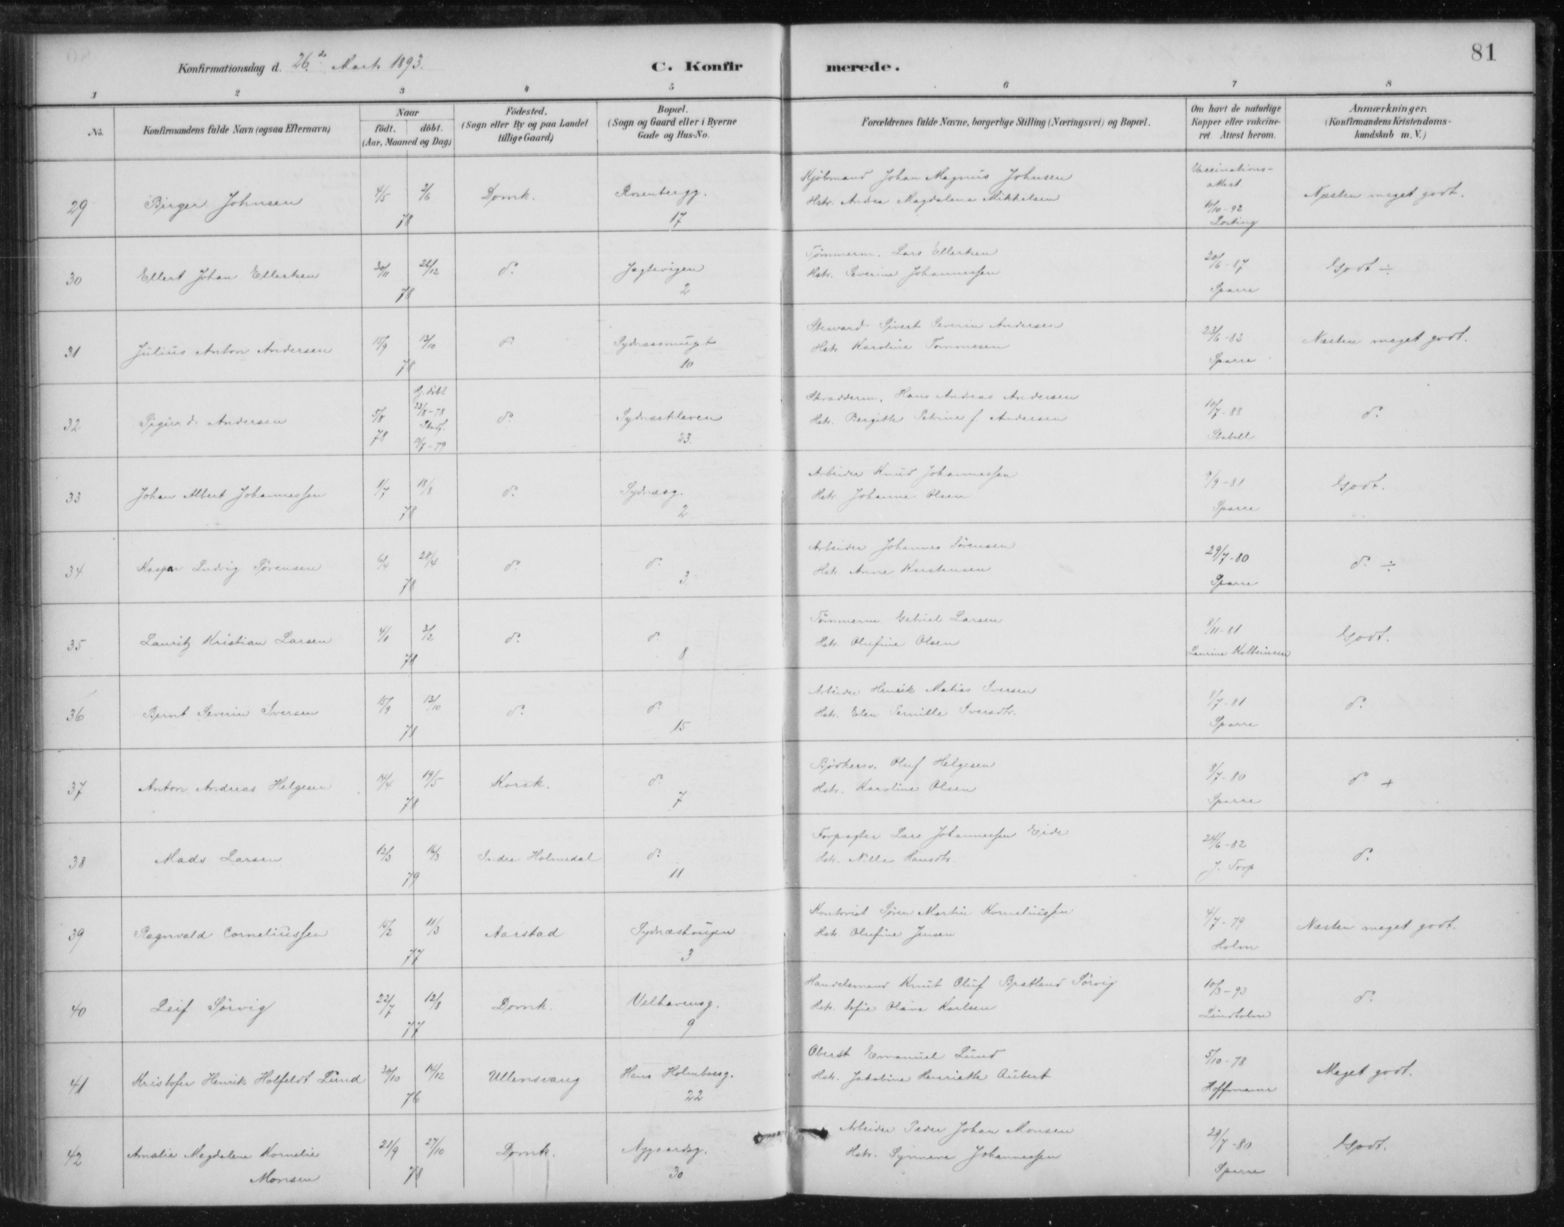 81
Konfirmationsdag d. 26de Marts 1893.
C. Konfirmerede.
1 2 3 4 5 6 7 8
No. Konfirmandens fulde Navn (ogsaa Efternavn) Naar født. døbt. (Aar, Maaned og Dag) Fødested. (Sogn eller By og paa Landet tillige Gaard) Bopæl. (Sogn og Gaard eller i Byerne Gade og Hus-No. Forældrenes fulde Navne, borgerlige Stilling (Næringsvei) og Bopæl. Om havt de naturlige Kopper eller vakcineret. Attest herom. Anmærkninger. (Konfirmandens Kristendomskundskab m. V.)
29 Birger Johnsen 4/5 2/6 78 Domk. Rosenbergg. 17
Johan Magnus Johnsen
Hstr. Andrea Magdalena Mikkelsen
Vaccinations-attest 11/10-92
Næsten meget godt.
30 Ellert Johan Ellertsen 30/11 26/12 78 do. Jægtevigen 2
Tømmerm. Lars Ellertsen
Hstr. Severine Johannessen
20/6-87 Sparre
Godt ÷
31 Julius Anton Andersen 15/9 13/10 78 do. Sydnæssmugt 10
Steward Sivert Severin Andersen
Hstr. Karoline Tommesen
23/6-83 Sparre
Næsten meget godt.
32 Sigurd Andersen 5/8 78 hj. døbt 22/8-78 do. Sydneskleven 23.
Skrædderm. Hans Andreas Andersen
Hstr. Bergitte Petrine f. Andersen
10/7-83 Stabell
do.
33 Johan Albert Johannessen 1/7 18/8 78 do. Sydnesg. 2
Arbeider Knud Johannessen
Hstr. Johanne Olsen
9/9-81 Sparre
Godt.
34 Kasper Ludvig Sørensen 6/4 28/4 78 do. do. 3
Arbeider Johannes Sørensen
Hstr. Anne Kristensen
29/7-80 Sparre
do. ÷
35 Lauritz Kristian Larsen 4/1 3/2 78 do. do. 8
Tømmerm. Gabriel Larsen
Hstr. Olufine Olsen
9/11-81 Laurine Kolbeinsen
Godt.
36 Bernt Severin Iversen 15/9 13/10 78 do. do. 15
Arbeider Henrik Matias Iversen
Hstr. Elen Pernille Iversdtr.
1/7-81 Sparre
do.
37 Anton Andreas Helgesen 14/4 19/5 78 Korsk. do. 7
Bødkersv. Oluf Helgesen
Hstr. Karoline Olsen
3/7-80 Sparre
do. +
38 Mads Larsen 12/3 16/3 79 Indre Holmedal do. 11
Forpagter Lars Johannessen Eide
Hstr. Nille Hansdtr.
24/6-82 J. Torp
do.
39 Ragnvald Corneliussen 14/2 11/3 77 Aarstad Sydneshaugen 3
Kontorist Søren Martin Korneliussen
Hstr. Olufine Jensen
4/7-79 Holm
Næsten meget godt.
40 Leif Sørvig 22/7 12/8 77 Domk. Velhavensg. 9
Handelsmand Knut Oluf Bratland Sørvig
Hstr. Sofie Olava Karlsen
10/3-93 Lindholm
do.
41 Kristofer Henrik Holfeldt Lund 20/10 14/12 76 Ullensvang Hans Holmboesg. 22
Oberst Emanuel Lund
Hstr. Jakobine Henriette Aubert
5/10-78 Hoffmann
Meget godt.
42 Amalie Magdalene Kornelie Monsen 21/9 27/10 78 Domk. Nygaardsg. 30
Arbeider Peder Johan Monsen
Hstr. Synneve Johannessen
29/7-80 Sparre
Godt.